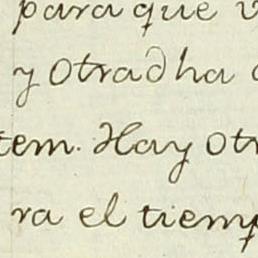 para que v
y otra dha
tem. Hay otr
ra el tiemp